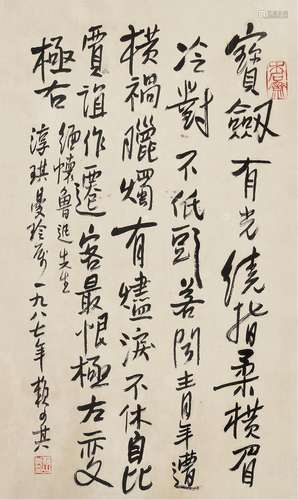 寶劔有光繞指柔橫眉
冷對不低頭若聞青年遭
橫禍臘燭有燼淚不休自比
賈誼作遷客最恨極左變
極右
緬懷魯迅先生
淳琪曼玲屬一九八七年賴少其